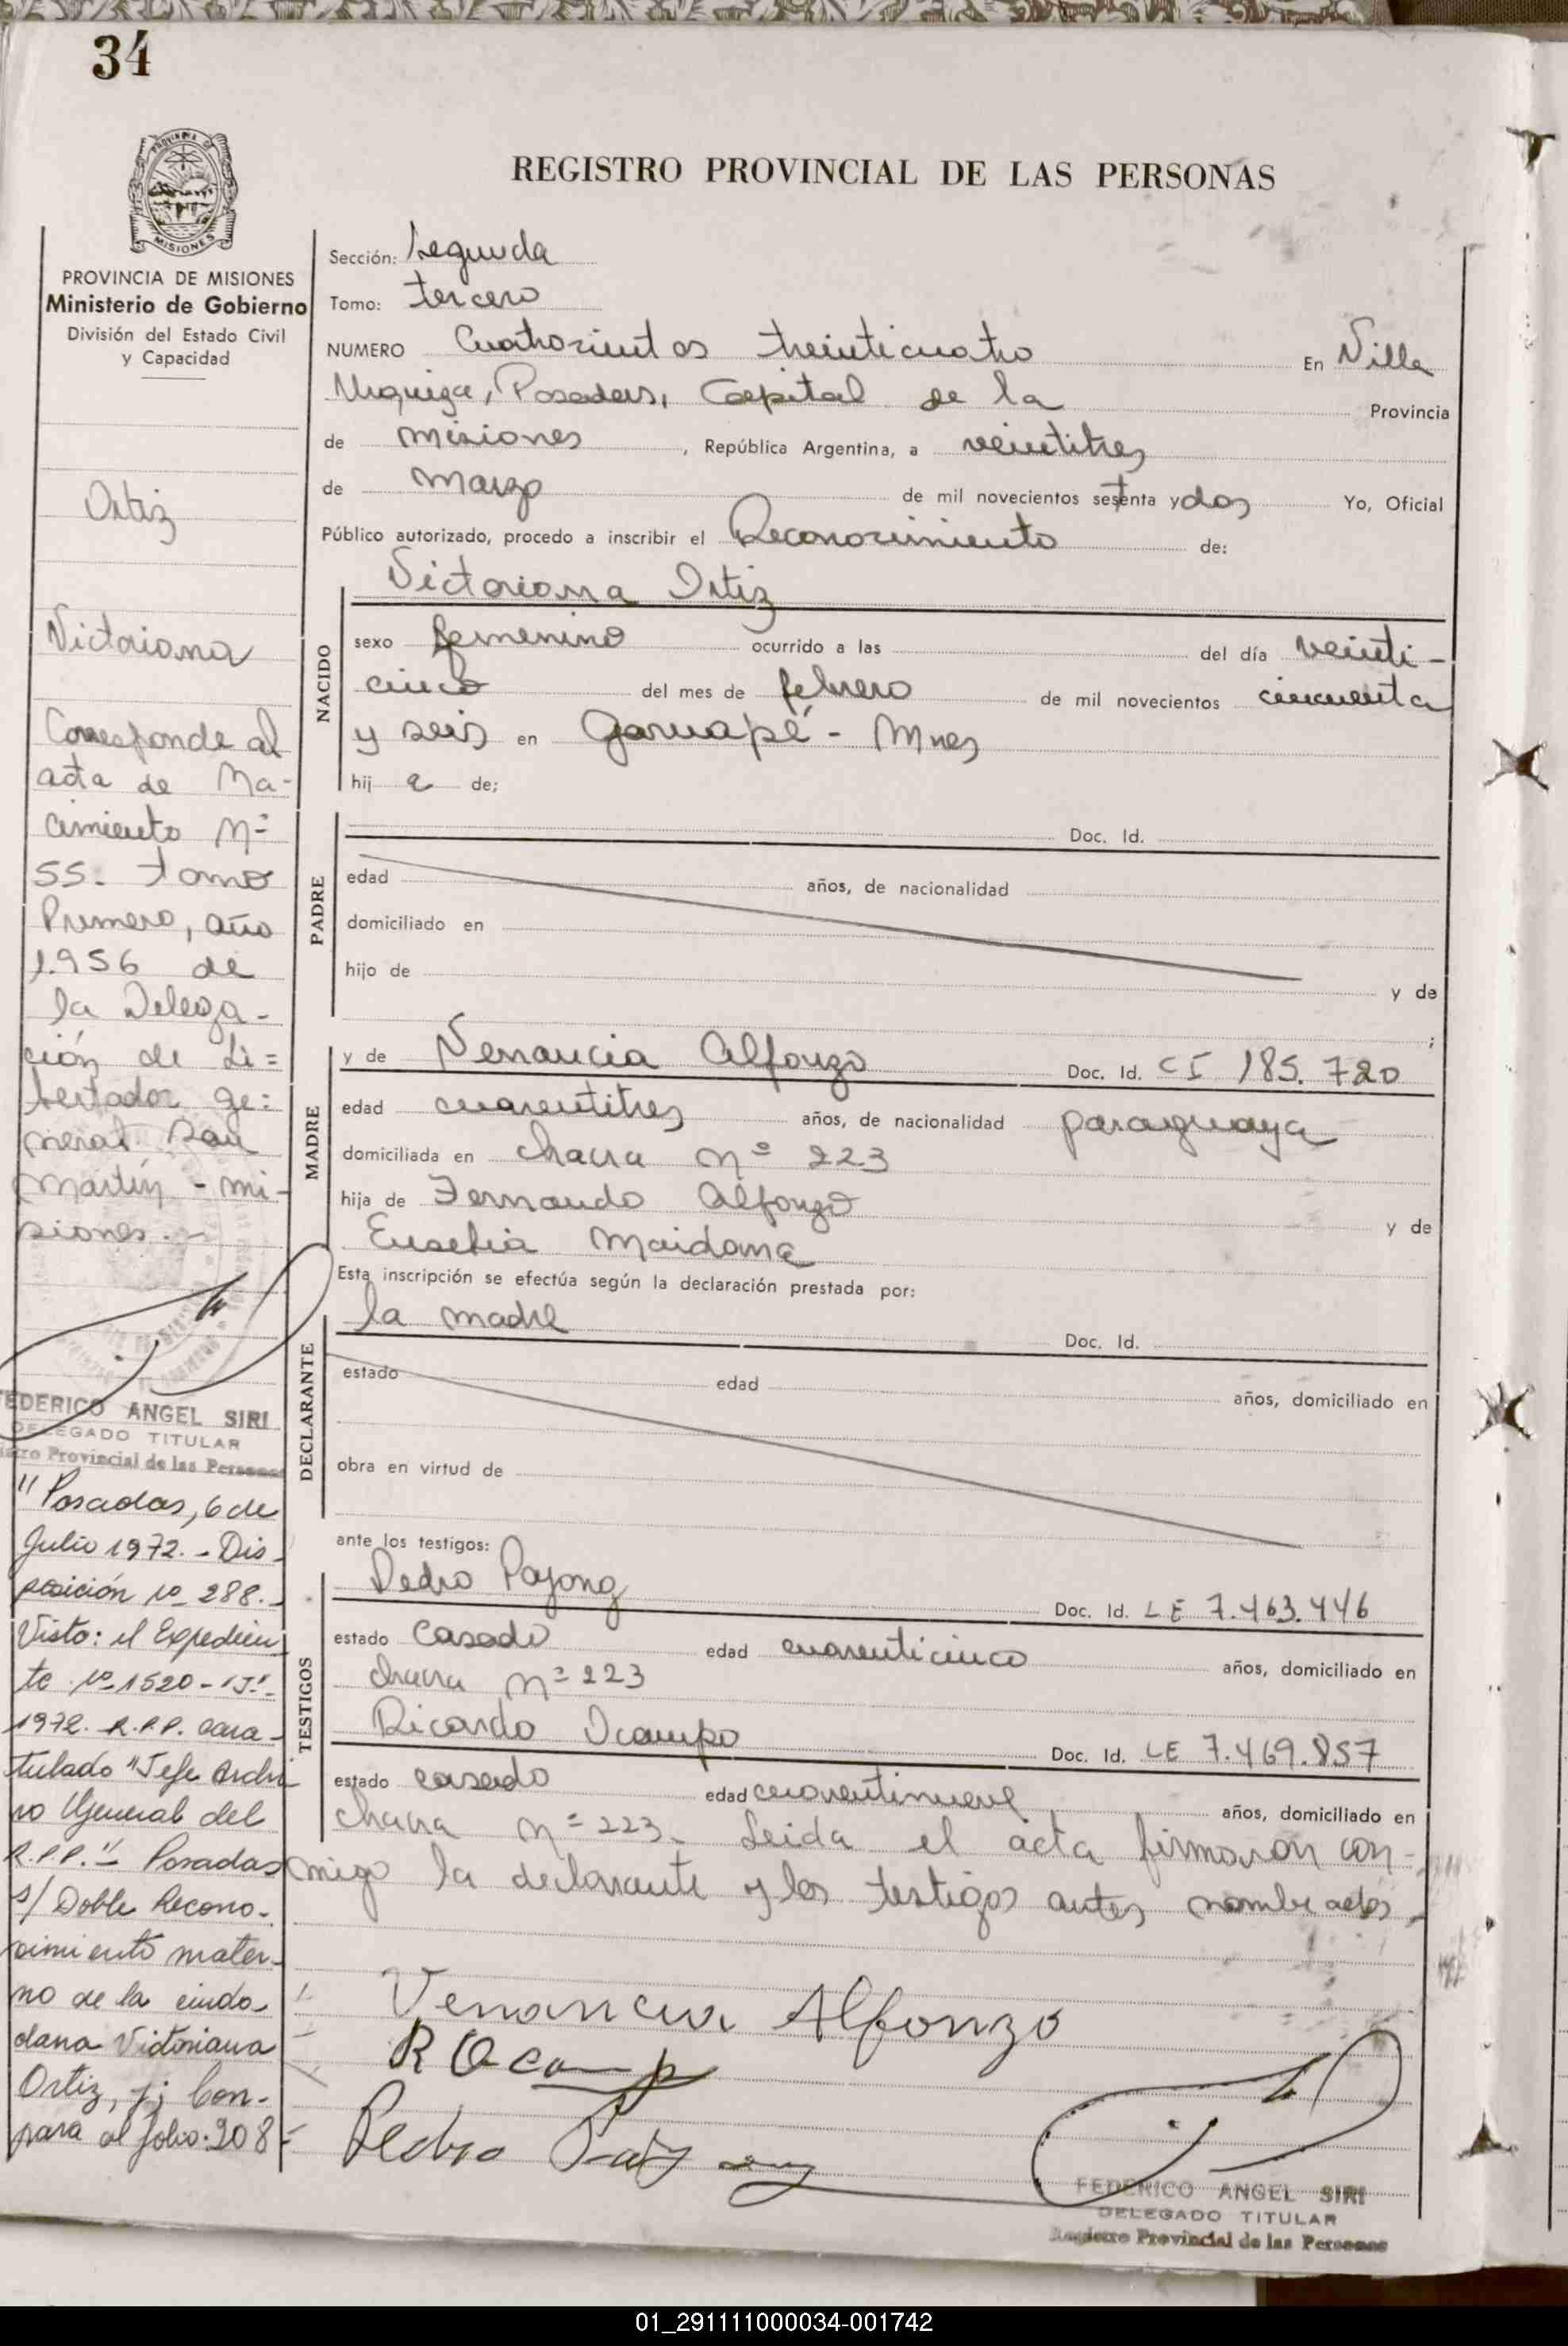 34
PROVINCIA DE MISIONES
Ministerio de Gobierno
División del Estado Civil
y Capacidad
Ortiz
Victoriana
Corresponde al
acta de Na-
cimiento Nº
55. tomo
Primero, año
1.956 de
la Delega-
ción de Li=
bertador ge=
neral San
Martín - mi-
siones.-
FEDERICO ANGEL SIRI
DELEGADO TITULAR
Registro Provincial de las Personas
"Posadas, 6 de
Julio 1972.- Dis-
posición Nº 288.-
Visto: el Expedien
te Nº 1520-"J"-
1972. R.P.P. cara-
tulado "Jefe Archi
vo General del
R.P.P."- Posadas
s/ Doble Recono-
cimiento mater-
no de la ciuda-
dana Victoriana
Ortiz, y; Con-
para al folio: 208-
REGISTRO PROVINCIAL DE LAS PERSONAS
Sección: Segunda
Tomo: tercero
NUMERO Cuatrocientos treinticuatro En Villa
Urquiza, Posadas, Capital de la Provincia
de misiones, República Argentina, a veintitres
de marzo de mil novecientos setenta y dos Yo, Oficial
Público autorizado, procedo a inscribir el Reconocimiento de:
NACIDO
Victoriana Ortiz
sexo femenino ocurrido a las del día veinti-
cinco del mes de febrero de mil novecientos cincuenta
y seis en Garuapé - Mnes
hij a de;
PADRE
Doc. Id.
edad años, de nacionalidad
domiciliado en
hijo de y de
;
MADRE
y de Venancia Alfonzo Doc. Id. CI 185.720
edad cuarentitres años, de nacionalidad paraguaya
domiciliada en chacra nº 223
hija de Fernando Alfonzo y de
Eusebia Maidana
Esta inscripción se efectúa según la declaración prestada por:
DECLARANTE
la madre Doc. Id.
estado edad años, domiciliado en
obra en virtud de
ante los testigos:
TESTIGOS
Pedro Payong Doc. Id. LE 7.463.446
estado casado edad cuarenticinco años, domiciliado en
chacra nº 223
Ricardo Ocampo Doc. Id. LE 7.469.857
estado casado edad cuarentinueve años, domiciliado en
chacra nº 223. Leida el acta firmaron con-
migo la declarante y los testigos antes nombrados.
Venancia Alfonzo
R Ocamp
Pedro
FEDERICO ANGEL SIRI
DELEGADO TITULAR
Registro Provincial de las Personas
01_291111000034-001742